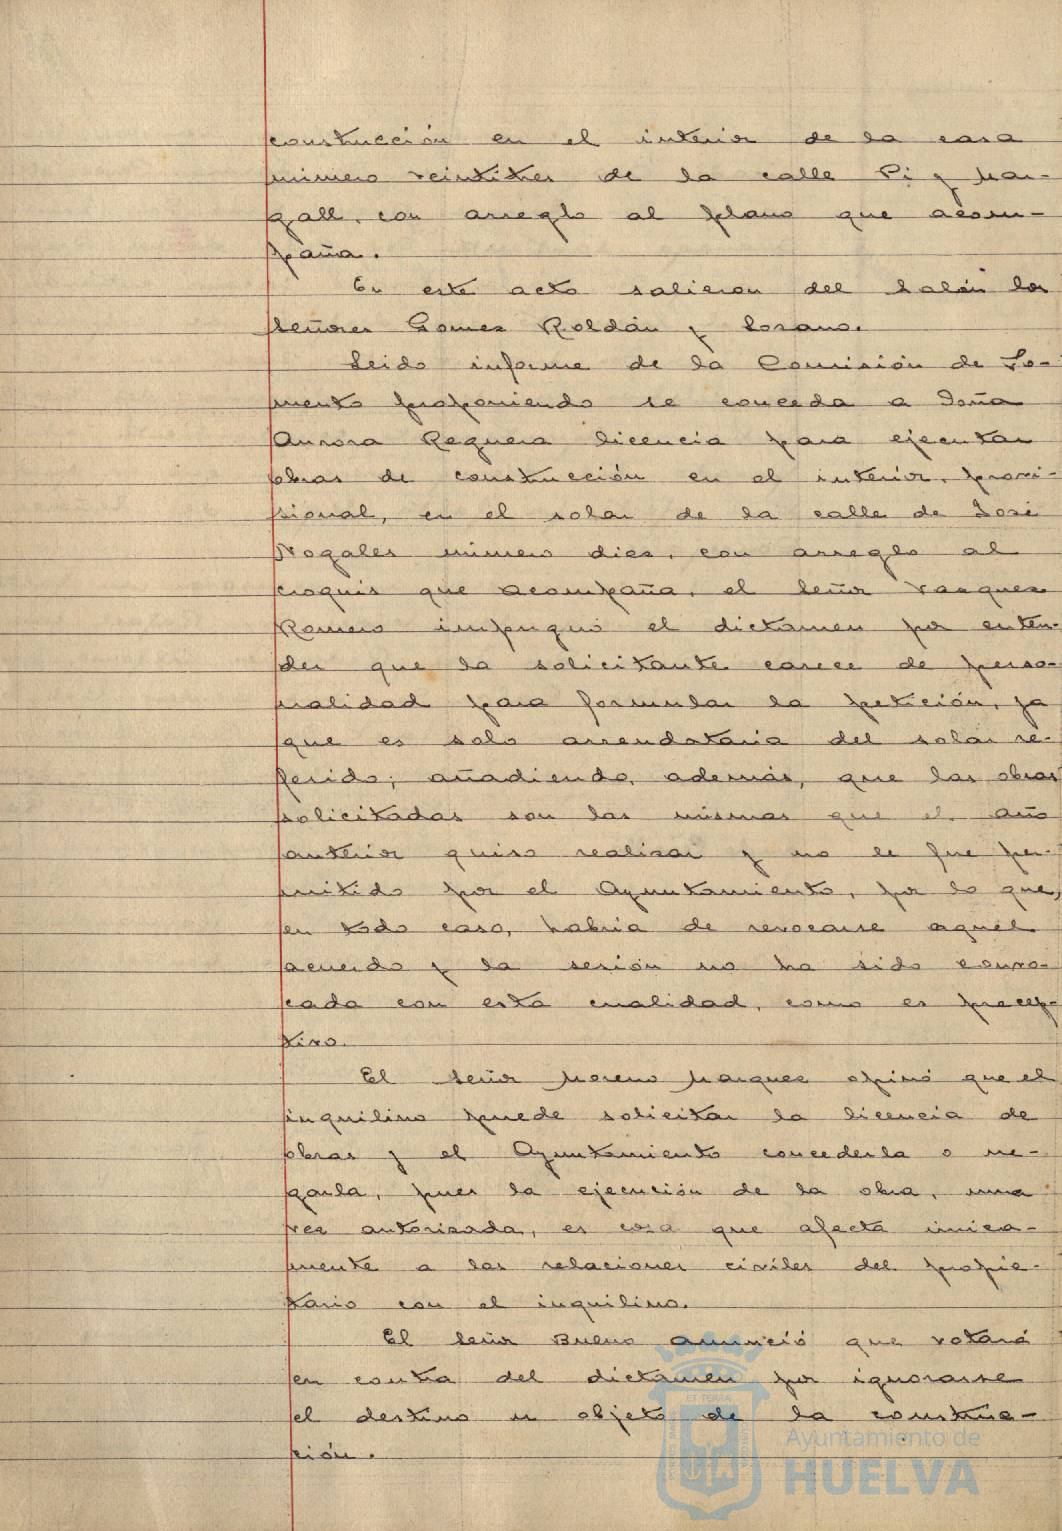 construcción en el interior de la casa
número veintitres de la calle Pi y Mar-
gall, con arreglo al plano que acom-
paña.
En este acto salieron del salón los
señores Gomez Roldán y Lozano.
Leido informe de la Comisión de Fo-
mento proponiendo se conceda a Doña
Aurora Reguera licencia para ejecutar
obras de construcción en el interior, provi-
sional, en el solar de la calle de José
Nogales número diez, con arreglo al
croquis que acompaña, el señor Vazquez
Romero impugnó el dictamen por enten-
der que la solicitante carece de perso-
nalidad para formular la petición, ya
que es solo arrendataria del solar re-
ferido; añadiendo, además, que las obras
solicitadas son las mismas que el año
anterior quiso realizar y no le fue per-
mitido por el Ayuntamiento, por lo que,
en todo caso, habria de revocarse aquel
acuerdo y la sesión no ha sido convo-
cada con esta cualidad, como es precep-
tivo.
El señor Moreno Marquez opinó que el
inquilino puede solicitar la licencia de
obras y el Ayuntamiento concederla o ne-
garla, pues la ejecución de la obra, una
vez autorizada, es cosa que afecta unica-
mente a las relaciones civiles del propie-
tario con el inquilino.
El señor Bueno anunció que votará
en contra del dictamen por ignorarse
el destino u objeto de la construc-
ción.
Ayuntamiento de
HUELVA